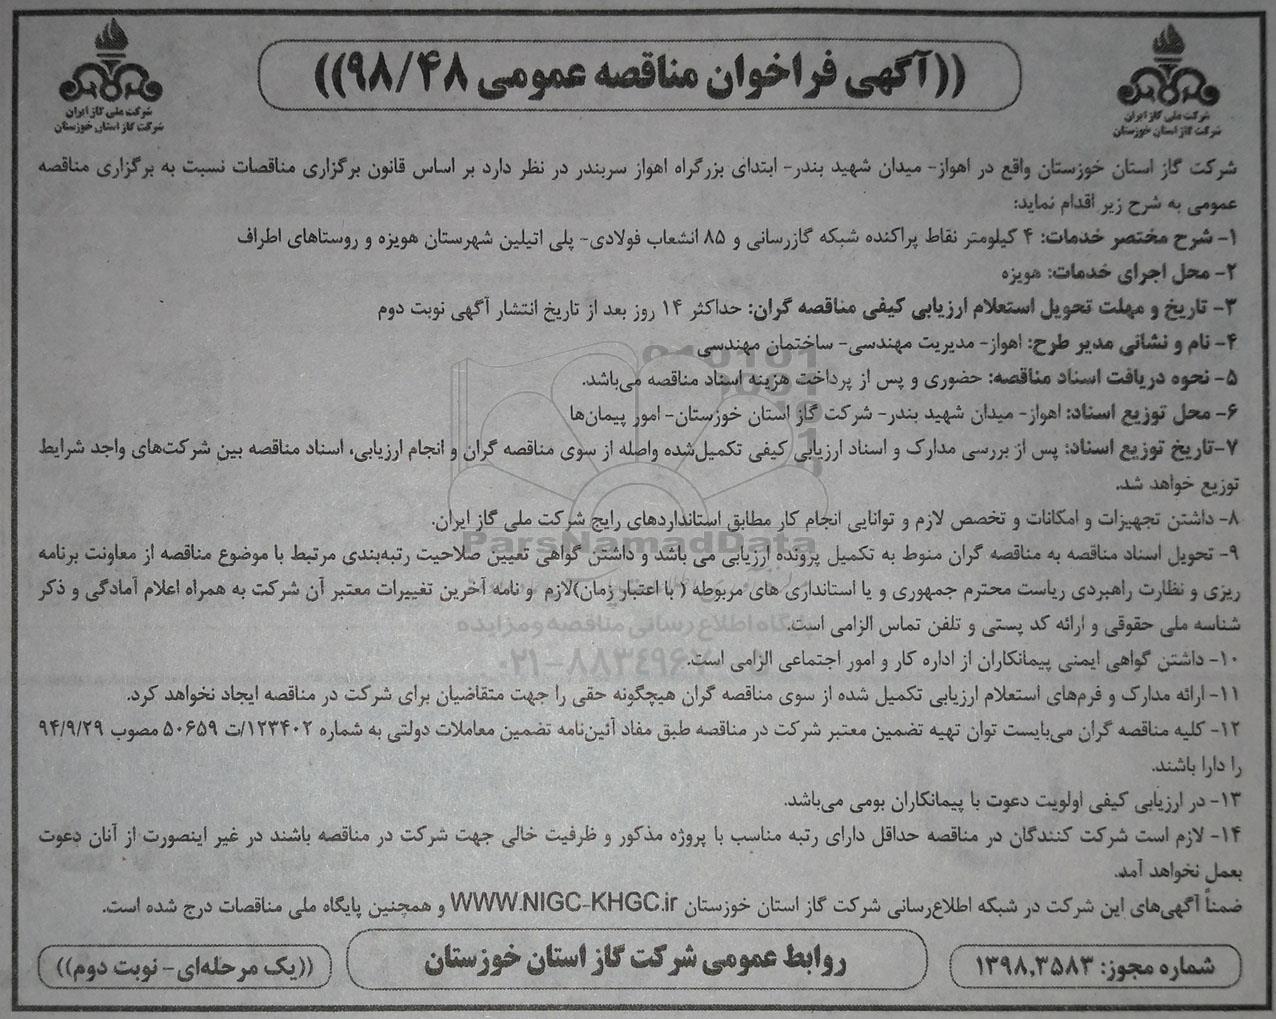 ((آگهی فراخوان مناقصه عمومی ۹۸/۴۸))
شرکت ملی گاز ایران
شرکت گاز استان خوزستان
شرکت ملی گاز ایران
شرکت گاز استان خوزستان
شرکت گاز استان خوزستان واقع در اهواز- میدان شهید بندر- ابتدای بزرگراه اهواز سربندر در نظر دارد بر اساس قانون برگزاری مناقصات نسبت به برگزاری مناقصه
عمومی به شرح زیر اقدام نماید:
۱- شرح مختصر خدمات: ۴ کیلومتر نقاط پراکنده شبکه گازرسانی و ۸۵ انشعاب فولادی- پلی اتیلین شهرستان هویزه و روستاهای اطراف
۲- محل اجرای خدمات: هویزه
۳- تاریخ و مهلت تحویل استعلام ارزیابی کیفی مناقصه گران: حداکثر ۱۴ روز بعد از تاریخ انتشار آگهی نوبت دوم
۴- نام و نشانی مدیر طرح: اهواز- مدیریت مهندسی- ساختمان مهندسی
۵- نحوه دریافت اسناد مناقصه: حضوری و پس از پرداخت هزینه اسناد مناقصه می‌باشد.
۶- محل توزیع اسناد: اهواز- میدان شهید بندر- شرکت گاز استان خوزستان- امور پیمان‌ها
۷-تاریخ توزیع اسناد: پس از بررسی مدارک و اسناد ارزیابی کیفی تکمیل‌شده واصله از سوی مناقصه گران و انجام ارزیابی، اسناد مناقصه بین شرکت‌های واجد شرایط
توزیع خواهد شد.
۸- داشتن تجهیزات و امکانات و تخصص لازم و توانایی انجام کار مطابق استانداردهای رایج شرکت ملی گاز ایران.
ParsNamadData
۹- تحویل اسناد مناقصه به مناقصه گران منوط به تکمیل پرونده ارزیابی می باشد و داشتن گواهی تعیین صلاحیت رتبه‌بندی مرتبط با موضوع مناقصه از معاونت برنامه
ریزی و نظارت راهبردی ریاست محترم جمهوری و یا استانداری های مربوطه ( با اعتبار زمان)لازم و نامه آخرین تغییرات معتبر آن شرکت به همراه اعلام آمادگی و ذکر
شناسه ملی حقوقی و ارائه کد پستی و تلفن تماس الزامی است.
پایگاه اطلاع رسانی مناقصه و مزایده
۱۰- داشتن گواهی ایمنی پیمانکاران از اداره کار و امور اجتماعی الزامی است.
۱۱- ارائه مدارک و فرم‌های استعلام ارزیابی تکمیل شده از سوی مناقصه گران هیچگونه حقی را جهت متقاضیان برای شرکت در مناقصه ایجاد نخواهد کرد.
۱۲- کلیه مناقصه گران می‌بایست توان تهیه تضمین معتبر شرکت در مناقصه طبق مفاد آئین‌نامه تضمین معاملات دولتی به شماره ۱۲۳۴۰۲/ت ۵۰۶۵۹ مصوب ۹۴/۹/۲۹
را دارا باشند.
۱۳- در ارزیابی کیفی اولویت دعوت با پیمانکاران بومی می‌باشد.
۱۴- لازم است شرکت کنندگان در مناقصه حداقل دارای رتبه مناسب با پروژه مذکور و ظرفیت خالی جهت شرکت در مناقصه باشند در غیر اینصورت از آنان دعوت
بعمل نخواهد آمد.
ضمناً آگهی‌های این شرکت در شبکه اطلاع‌رسانی شرکت گاز استان خوزستان WWW.NIGC-KHGC.ir و همچنین پایگاه ملی مناقصات درج شده است.
شماره مجوز: ۱۳۹۸,۳۵۸۳
روابط عمومی شرکت گاز استان خوزستان
((یک مرحله‌ای- نوبت دوم))